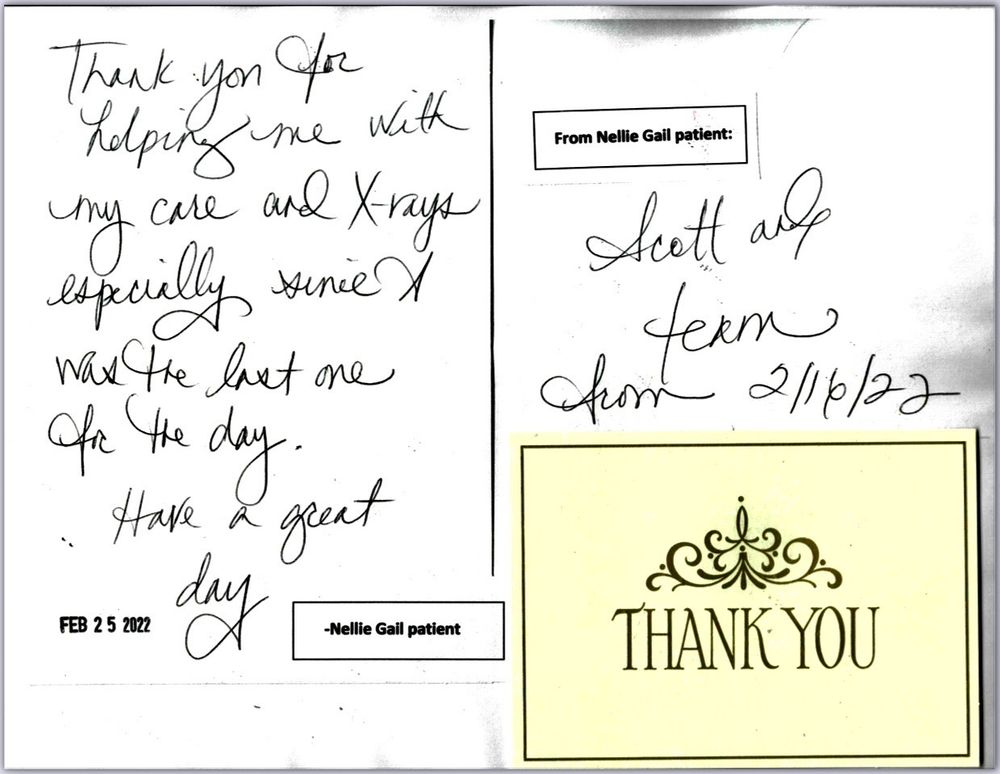 Thank you for
helping me with
my care and X-rays
especially since I
was the last one
for the day.
Have a great
day
FEB 25 2022
-Nellie Gail patient
From Nellie Gail patient:
Scott and
team
from 2/16/22
THANK YOU